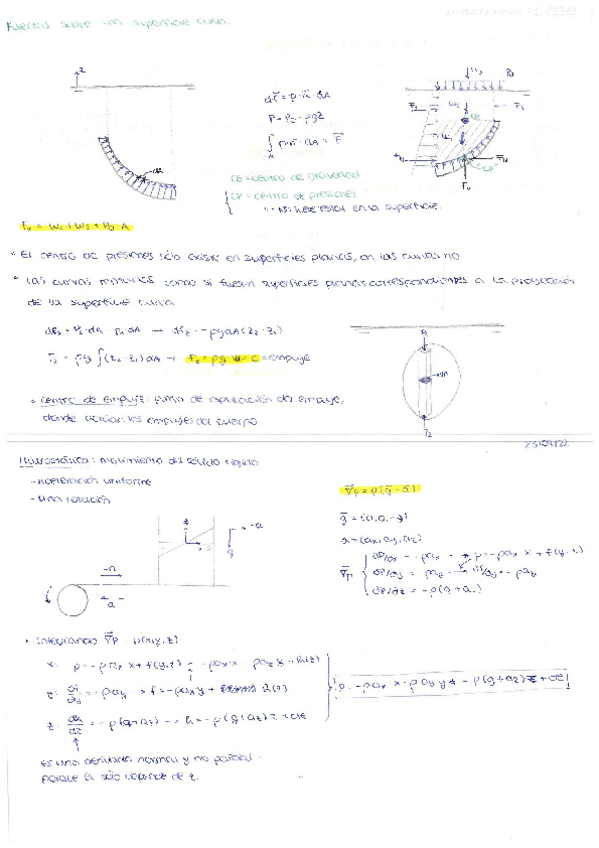 Fuerzas sobre una superficie curva.
z
dF = p·n·dA
P = P₀ - ρgz
∫ p·n·dA = F
A
CG = centro de gravedad
CP = centro de presiones
en la superficie.
Fv = W₁ + W₂ + P₀·A
• El centro de presiones sólo existe en superficies planas, en las curvas no
• Las curvas como si fuesen superficies planas correspondientes a la proyección
de la superficie curva
dFz = P₂·dA - P₁ dA → dFz = -ρg dA (z₂ - z₁)
Fz = ρg ∫(z₂ - z₁) dA → = empuje
• Centro de empuje: punto de aplicación del empuje,
donde actúan los empujes del cuerpo
23/09/22
: movimiento del sólido rígido
- aceleración uniforme
- una rotación
∇p = ρ(g - a)
g = (0, 0, -g)
a = (ax, ay, az)
∇p
dp/dz = -ρ(g + az)
• Integrando ∇p p(x,y,z)
x: p = -ρax x + f(y,z)
y:
z: dh/dz = -ρ(g + az) → h = -ρ(g + az) z + cte
p = -ρax x - ρay y - ρ(g + az) z + cte
Es una derivada normal y no parcial
porque h sólo depende de z.